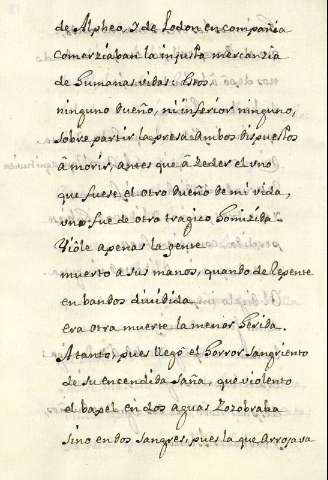 de Alpheo, y de Lodon en compañia
comerziaban la injusta mercanzia
de humanas vidas: Estos
ninguno dueño, ni inferior ninguno,
sobre partir la presa: Ambos dispuestos
â morir, antes que â zeder el uno
que fuese el otro dueño de mi vida,
uno fue de otro tragico homizida.
Viôle apenas la gente
muerto a sus manos, quando de repente
en bandos diuidida
era otra muerte la menor herida.
A tanto, pues llegô el horror sangriento
de su encendida saña, que violento
el baxel en dos aguas zozobraba
sino en dos sangres, pues la que arrojava